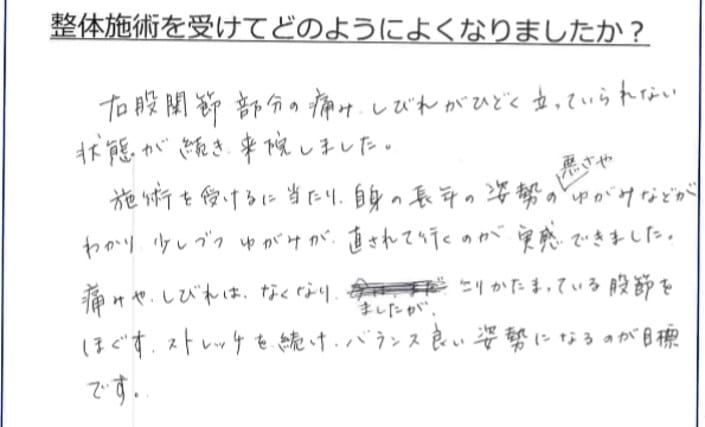 整体施術を受けてどのようによくなりましたか？
右股関節部分の痛み、しびれがひどく立っていられない
状態が続き、来院しました。
施術を受けるに当たり、自身の長年の姿勢の悪さやゆがみなどが
わかり、少しづつゆがみが、直されて行くのが実感できました。
痛みや、しびれは、なくなり、ましたが、こりかたまっている股節を
ほぐす、ストレッチを続け、バランス良い姿勢になるのが目標
です。